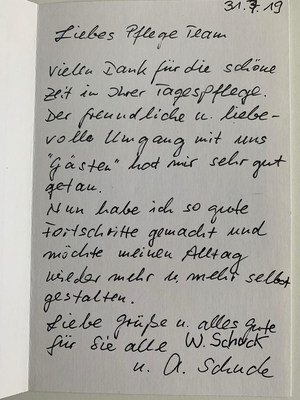 31.7.19
Liebes Pflege Team
Vielen Dank für die schöne
Zeit in Ihrer Tagespflege.
Der freundliche u. liebe-
volle Umgang mit uns
"Gästen" hat mir sehr gut
getan.
Nun habe ich so gute
Fortschritte gemacht und
möchte meinen Alltag
wieder mehr u. mehr selbst
gestalten.
Liebe grüße u. alles gute
für Sie alle W. Schuck
u. A. Schuck